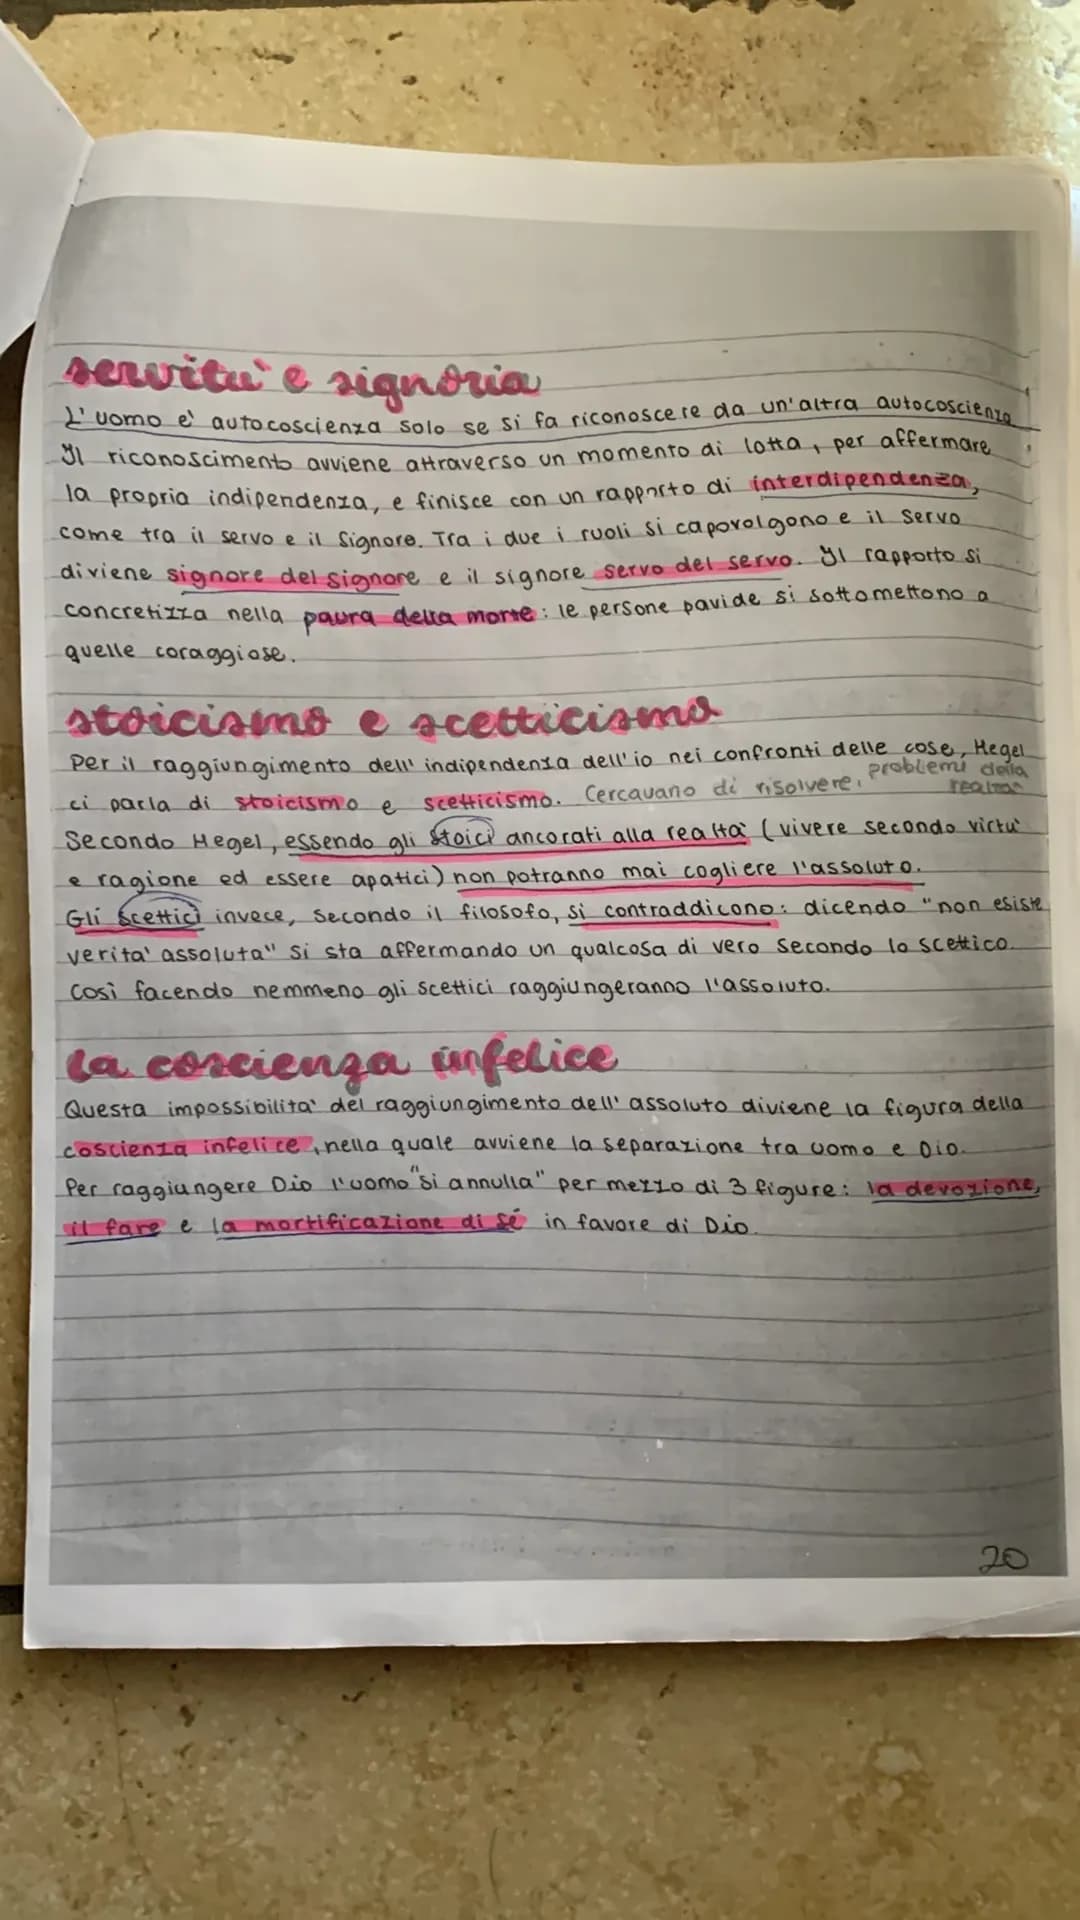 servitu' e signoria
L'uomo e' autocoscienza solo se si fa riconoscere da un'altra autocoscienza
Il riconoscimento avviene attraverso un momento di lotta, per affermare
la propria indipendenza, e finisce con un rapporto di interdipendenza,
come tra il servo e il Signore. Tra i due i ruoli si capovolgono e il Servo
diviene signore del signore e il signore servo del servo. Il rapporto si
concretizza nella paura della morte: le persone pavide si sottomettono a
quelle coraggiose.
stoicismo e scetticismo
Per il raggiungimento dell'indipendenza dell'io nei confronti delle cose, Hegel
ci parla di stoicismo e scetticismo. Cercavano di risolvere, problemi della
realtà
Secondo Hegel, essendo gli stoici ancorati alla realta' (vivere secondo virtu'
e ragione ed essere apatici) non potranno mai cogliere l'assoluto.
Gli scettici invece, secondo il filosofo, si contraddicono: dicendo "non esiste
verita' assoluta" si sta affermando un qualcosa di vero secondo lo scettico.
Così facendo nemmeno gli scettici raggiungeranno l'assoluto.
la coscienza infelice
Questa impossibilita' del raggiungimento dell'assoluto diviene la figura della
coscienza infelice, nella quale avviene la separazione tra uomo e Dio.
Per raggiungere Dio l'uomo "si annulla" per mezzo di 3 figure: la devozione,
il fare e la mortificazione di sé in favore di Dio.
20